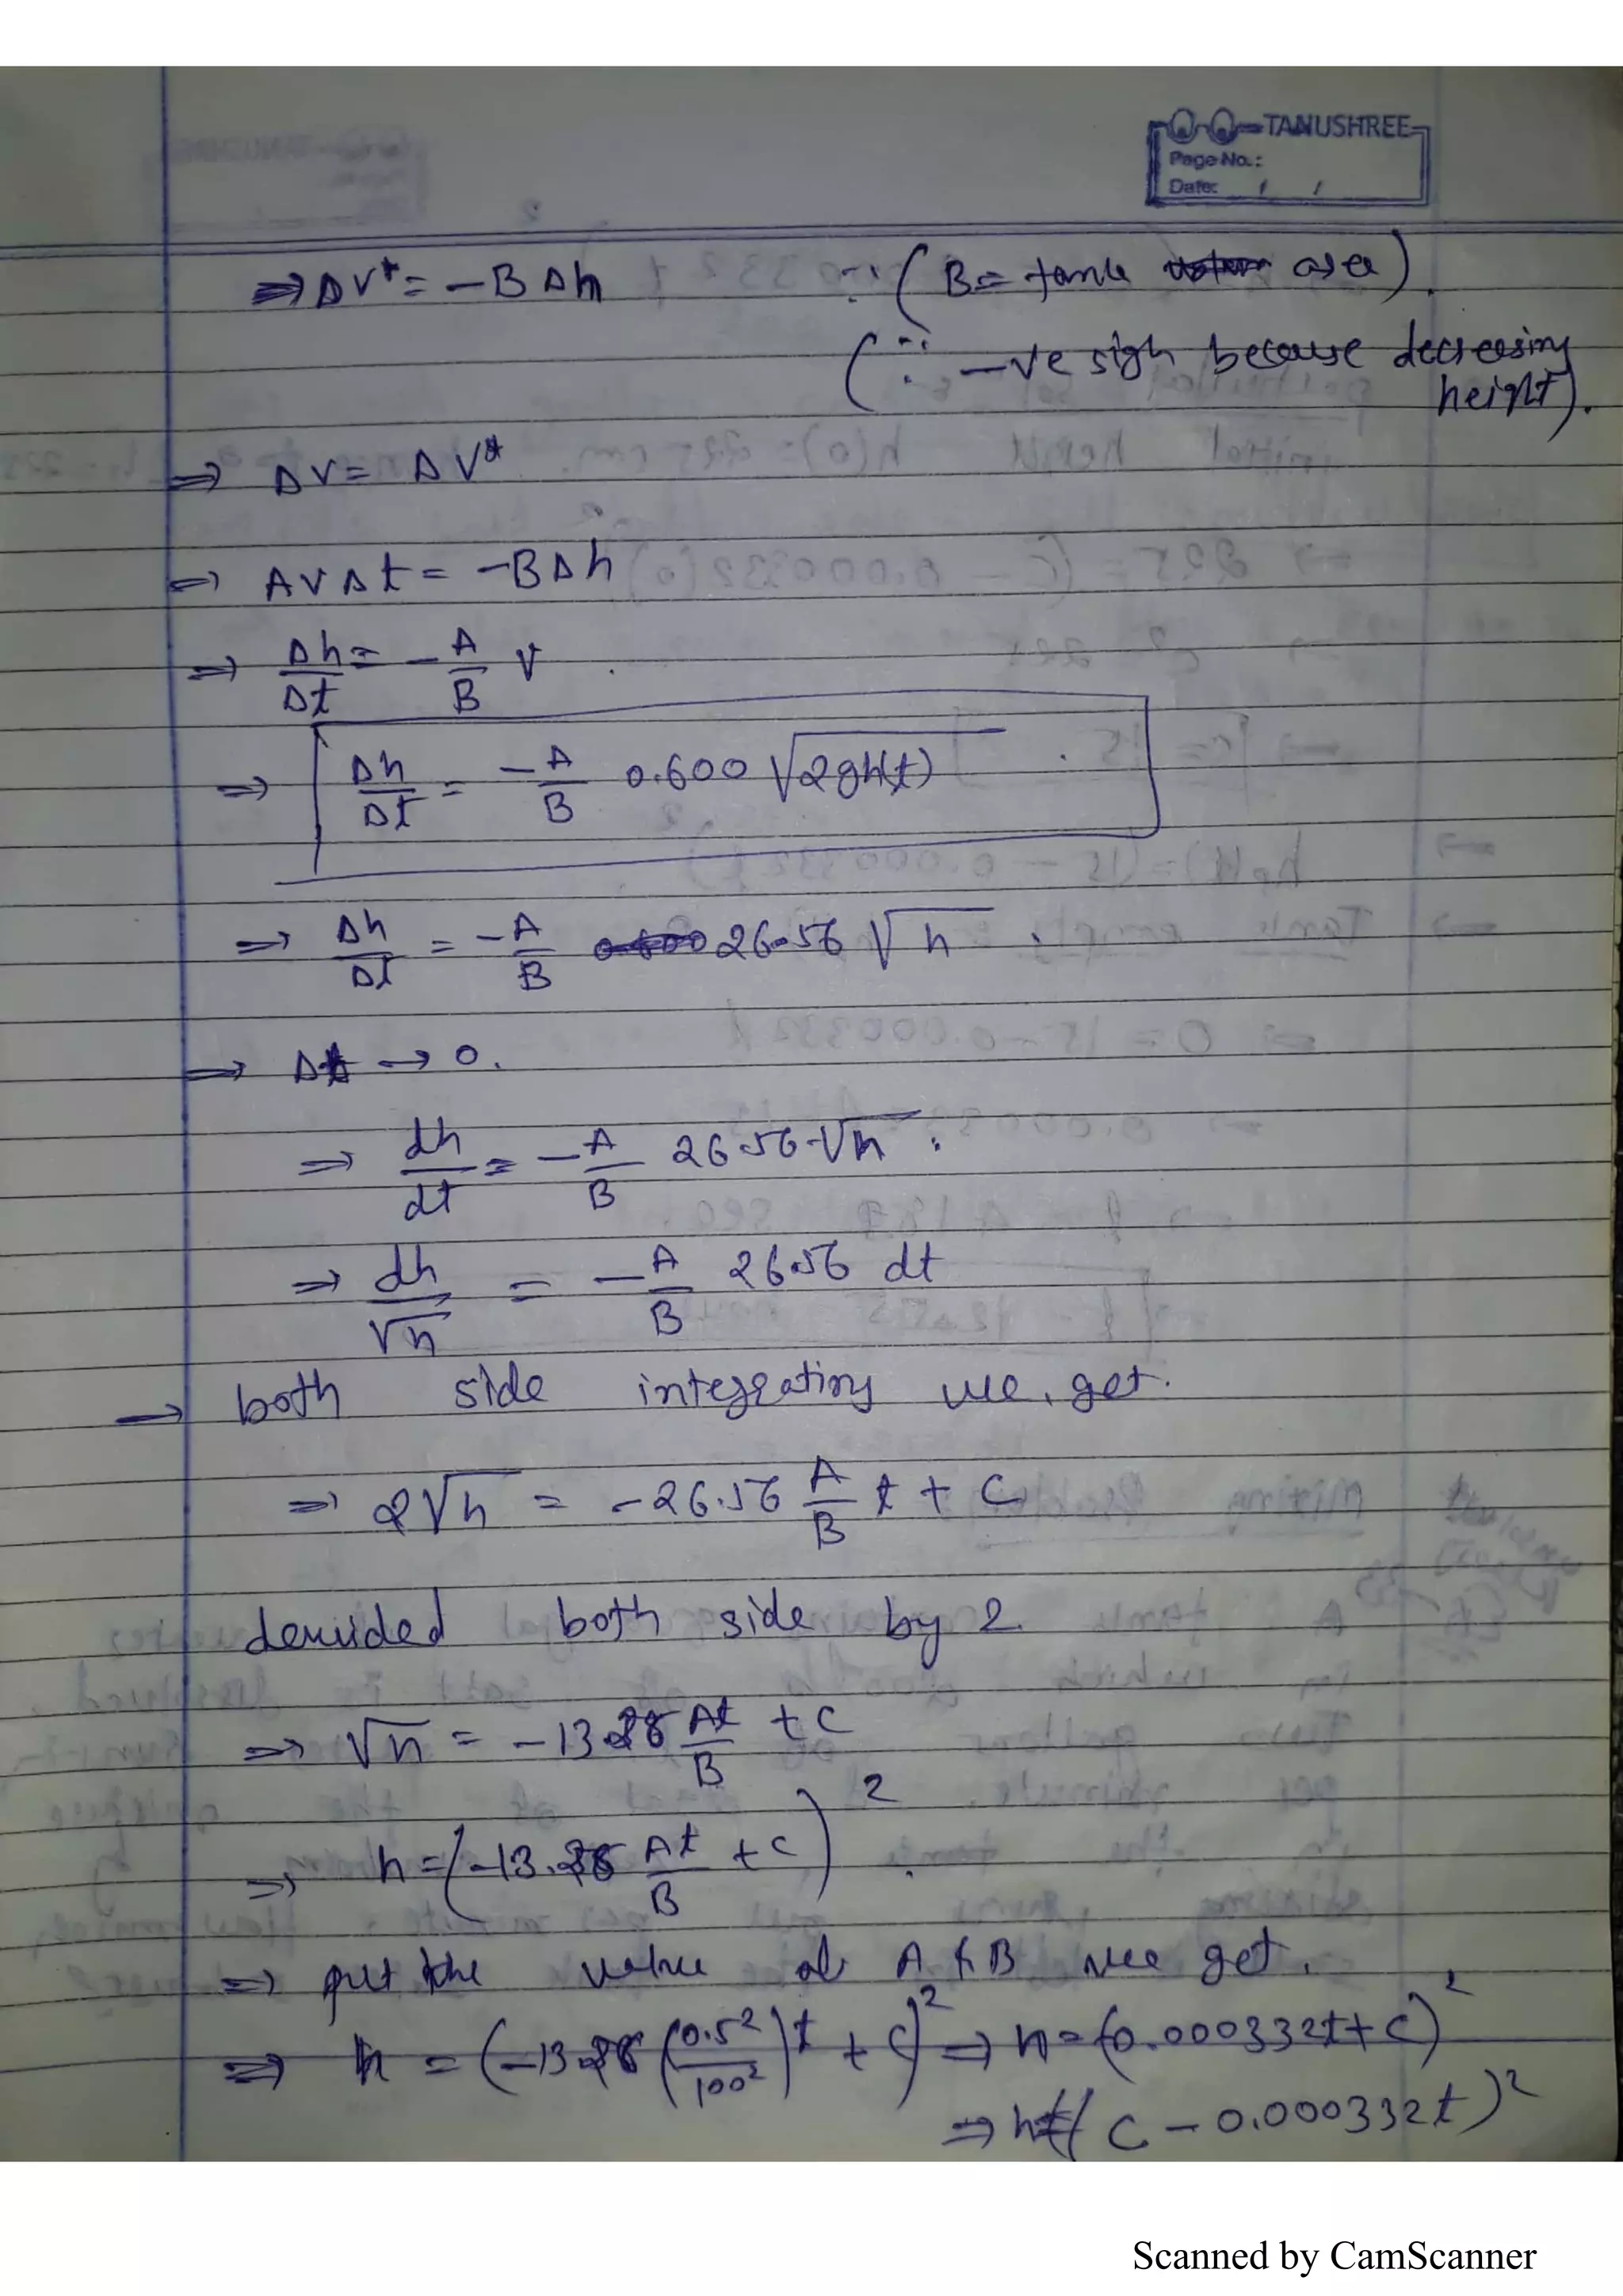 TANUSHREE
Page No.:
Date: / /
⇒ ΔV* = -BΔh ∵ (B = tank area).
(∵ -ve sign because decreasing
height).
⇒ ΔV = ΔV*
⇒ AVΔt = -BΔh
⇒ Δh/Δt = -A/B V
⇒ Δh/Δt = -A/B 0.600 √2gh(t)
⇒ Δh/Δt = -A/B 26.56 √h
⇒ Δt → 0.
⇒ dh/dt = -A/B 26.56 √h
⇒ dh/√h = -A/B 26.56 dt
→ both side integrating we get.
⇒ 2√h = -26.56 A/B t + C
devided both side by 2
⇒ √h = -13.28 At/B + C
⇒ h = (-13.28 At/B + C)²
⇒ put the value of A & B we get.
⇒ h = (-13.28 (0.5²/100²)t + C)² ⇒ h = (0.000332t + C)²
⇒ h = (C - 0.000332t)²
Scanned by CamScanner